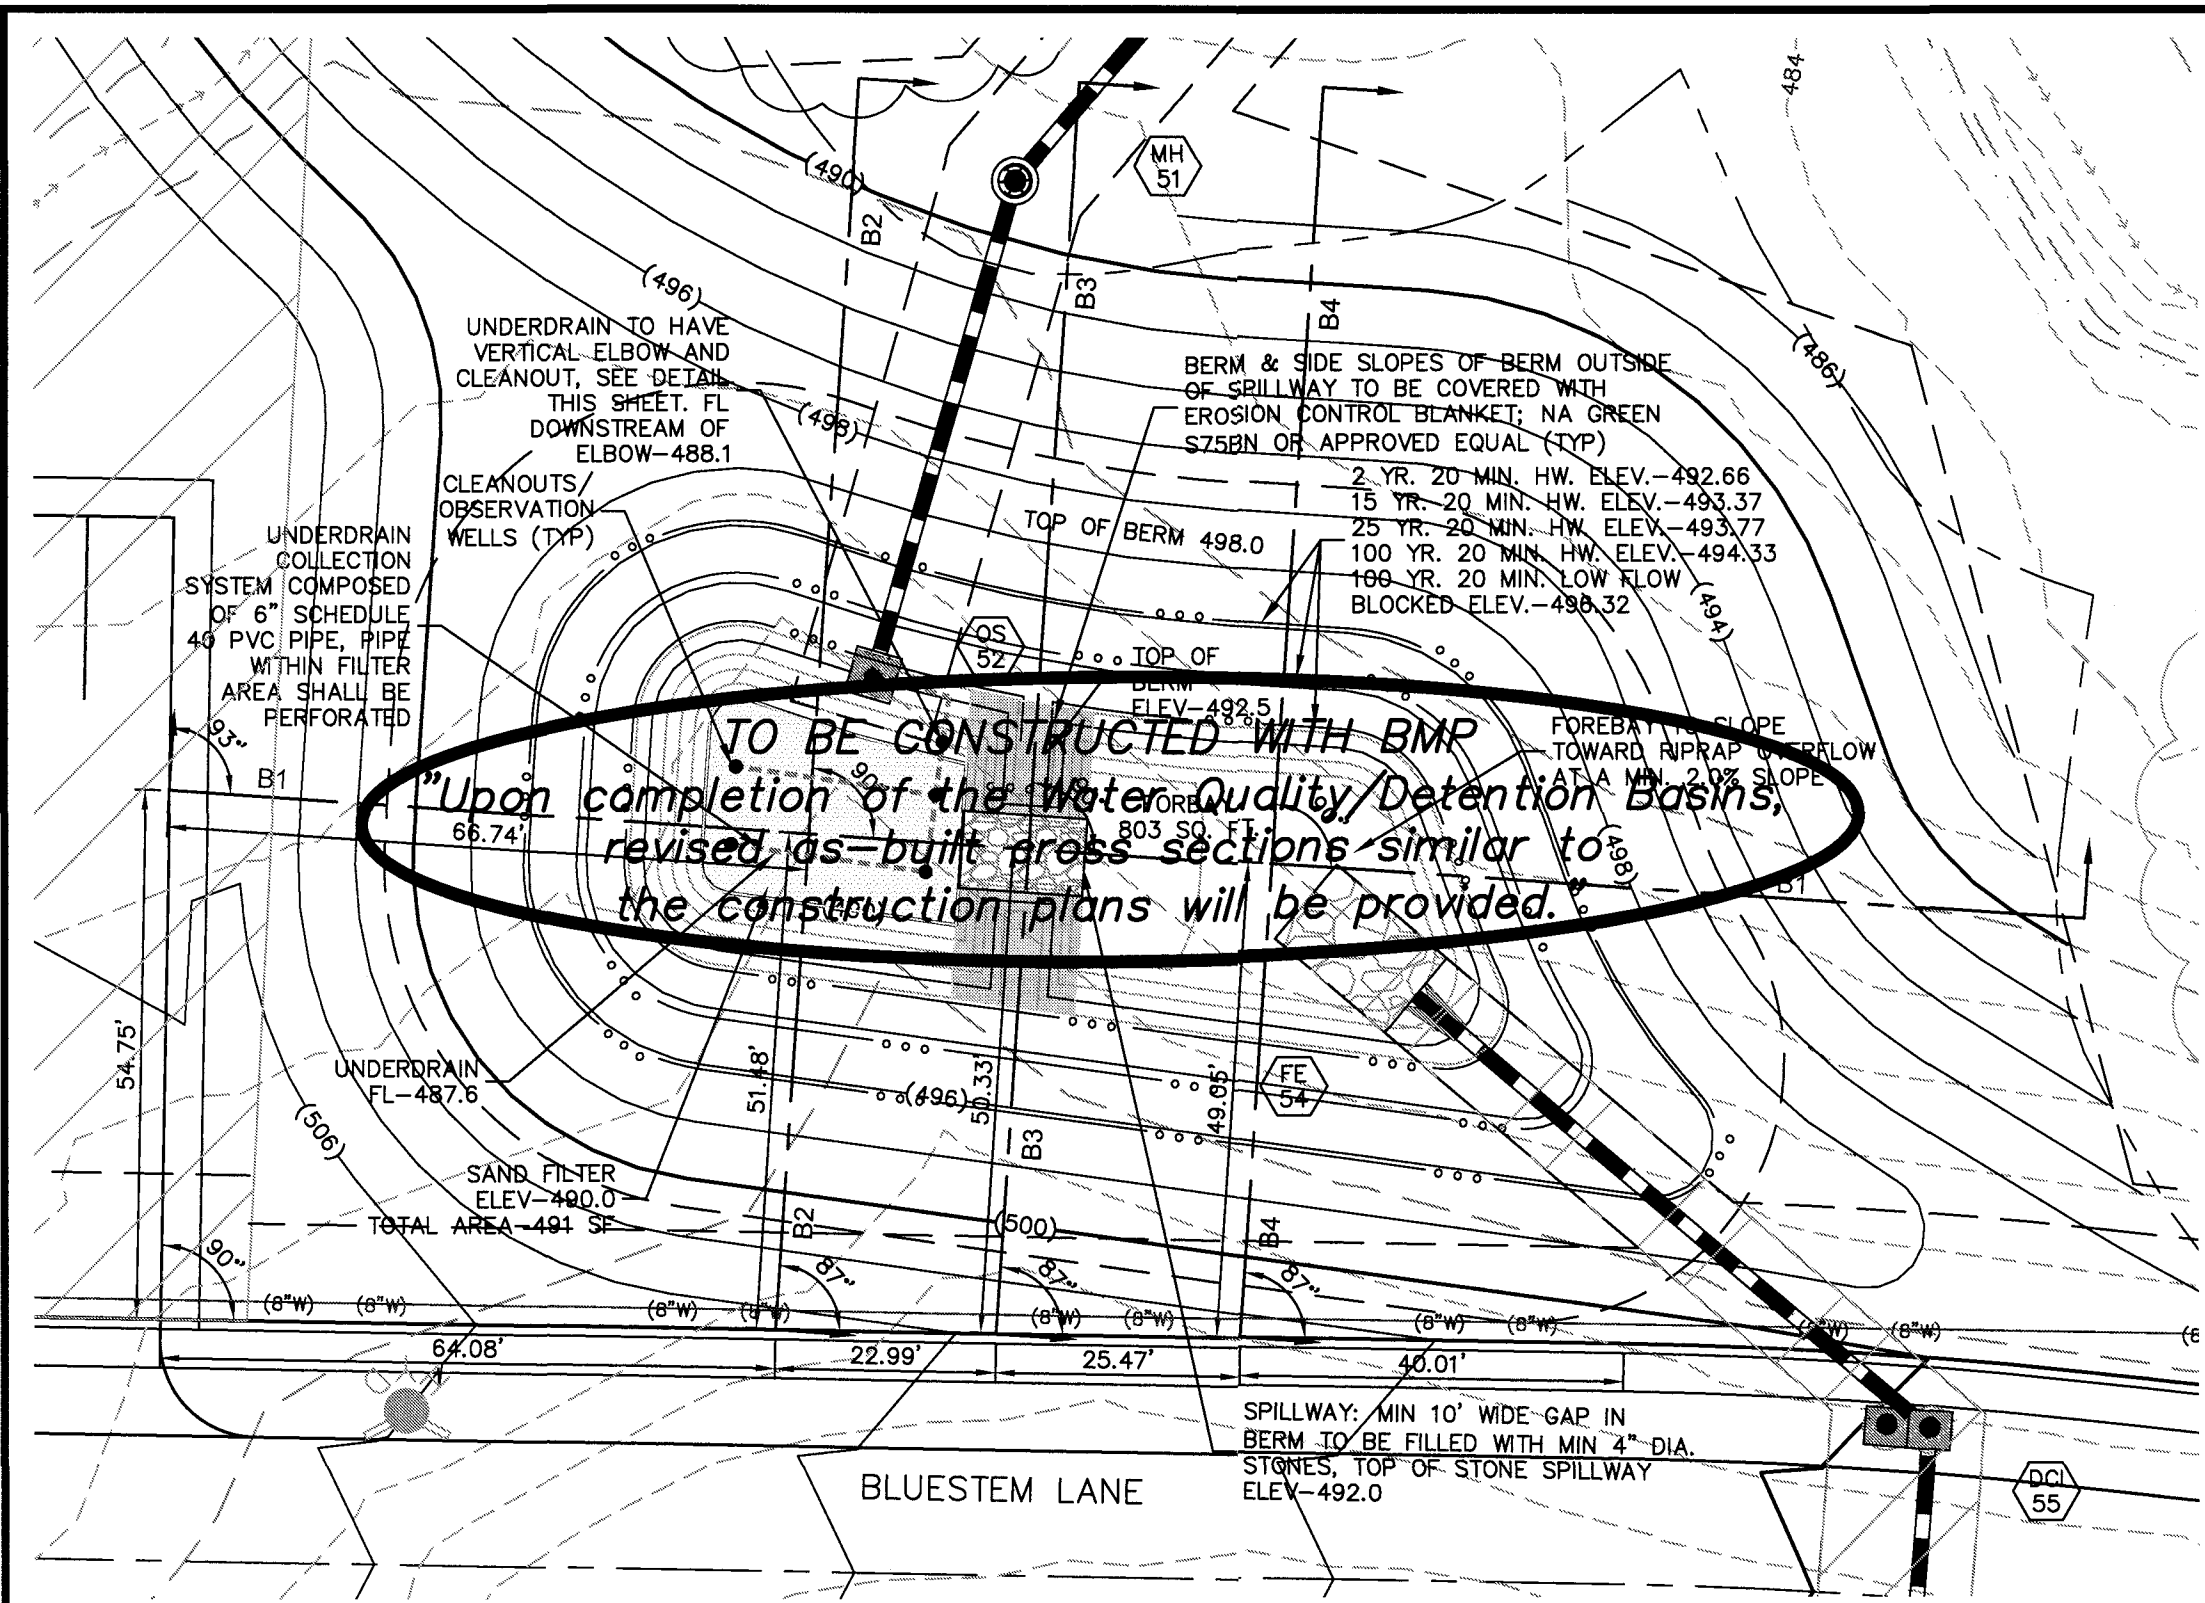 484
MH
51
(490)
B2
B3
B4
(496)
(486)
UNDERDRAIN TO HAVE
VERTICAL ELBOW AND
CLEANOUT, SEE DETAIL
THIS SHEET. FL
DOWNSTREAM OF
ELBOW-488.1
(498)
BERM & SIDE SLOPES OF BERM OUTSIDE
OF SPILLWAY TO BE COVERED WITH
EROSION CONTROL BLANKET; NA GREEN
S75BN OR APPROVED EQUAL (TYP)
2 YR. 20 MIN. HW. ELEV.-492.66
15 YR. 20 MIN. HW. ELEV.-493.37
25 YR. 20 MIN. HW. ELEV.-493.77
100 YR. 20 MIN. HW. ELEV.-494.33
100 YR. 20 MIN. LOW FLOW
BLOCKED ELEV.-496.32
CLEANOUTS/
OBSERVATION
WELLS (TYP)
TOP OF BERM 498.0
UNDERDRAIN
COLLECTION
SYSTEM COMPOSED
OF 6" SCHEDULE
40 PVC PIPE, PIPE
WITHIN FILTER
AREA SHALL BE
PERFORATED
(494)
OS
52
TOP OF
BERM
ELEV-492.5
FOREBAY TO SLOPE
TOWARD RIPRAP OVERFLOW
AT A MIN. 2.0% SLOPE
TO BE CONSTRUCTED WITH BMP
"Upon completion of the Water Quality/Detention Basins,
revised as-built cross sections similar to
the construction plans will be provided."
93°
B1
90°
66.74'
FORBAY
803 SQ. FT.
(498)
B1
54.75'
UNDERDRAIN
FL-487.6
51.48'
(496)
50.33'
49.05'
FE
54
(506)
B3
SAND FILTER
ELEV-490.0
TOTAL AREA-491 SF
B2
(500)
B4
90°
87°
87°
87°
(8"W) (8"W) (8"W) (8"W) (8"W) (8"W) (8"W) (8"W) (8"W) (8"W) (8
64.08' 22.99' 25.47' 40.01'
SPILLWAY: MIN 10' WIDE GAP IN
BERM TO BE FILLED WITH MIN 4" DIA.
STONES, TOP OF STONE SPILLWAY
ELEV-492.0
BLUESTEM LANE
DCI
55